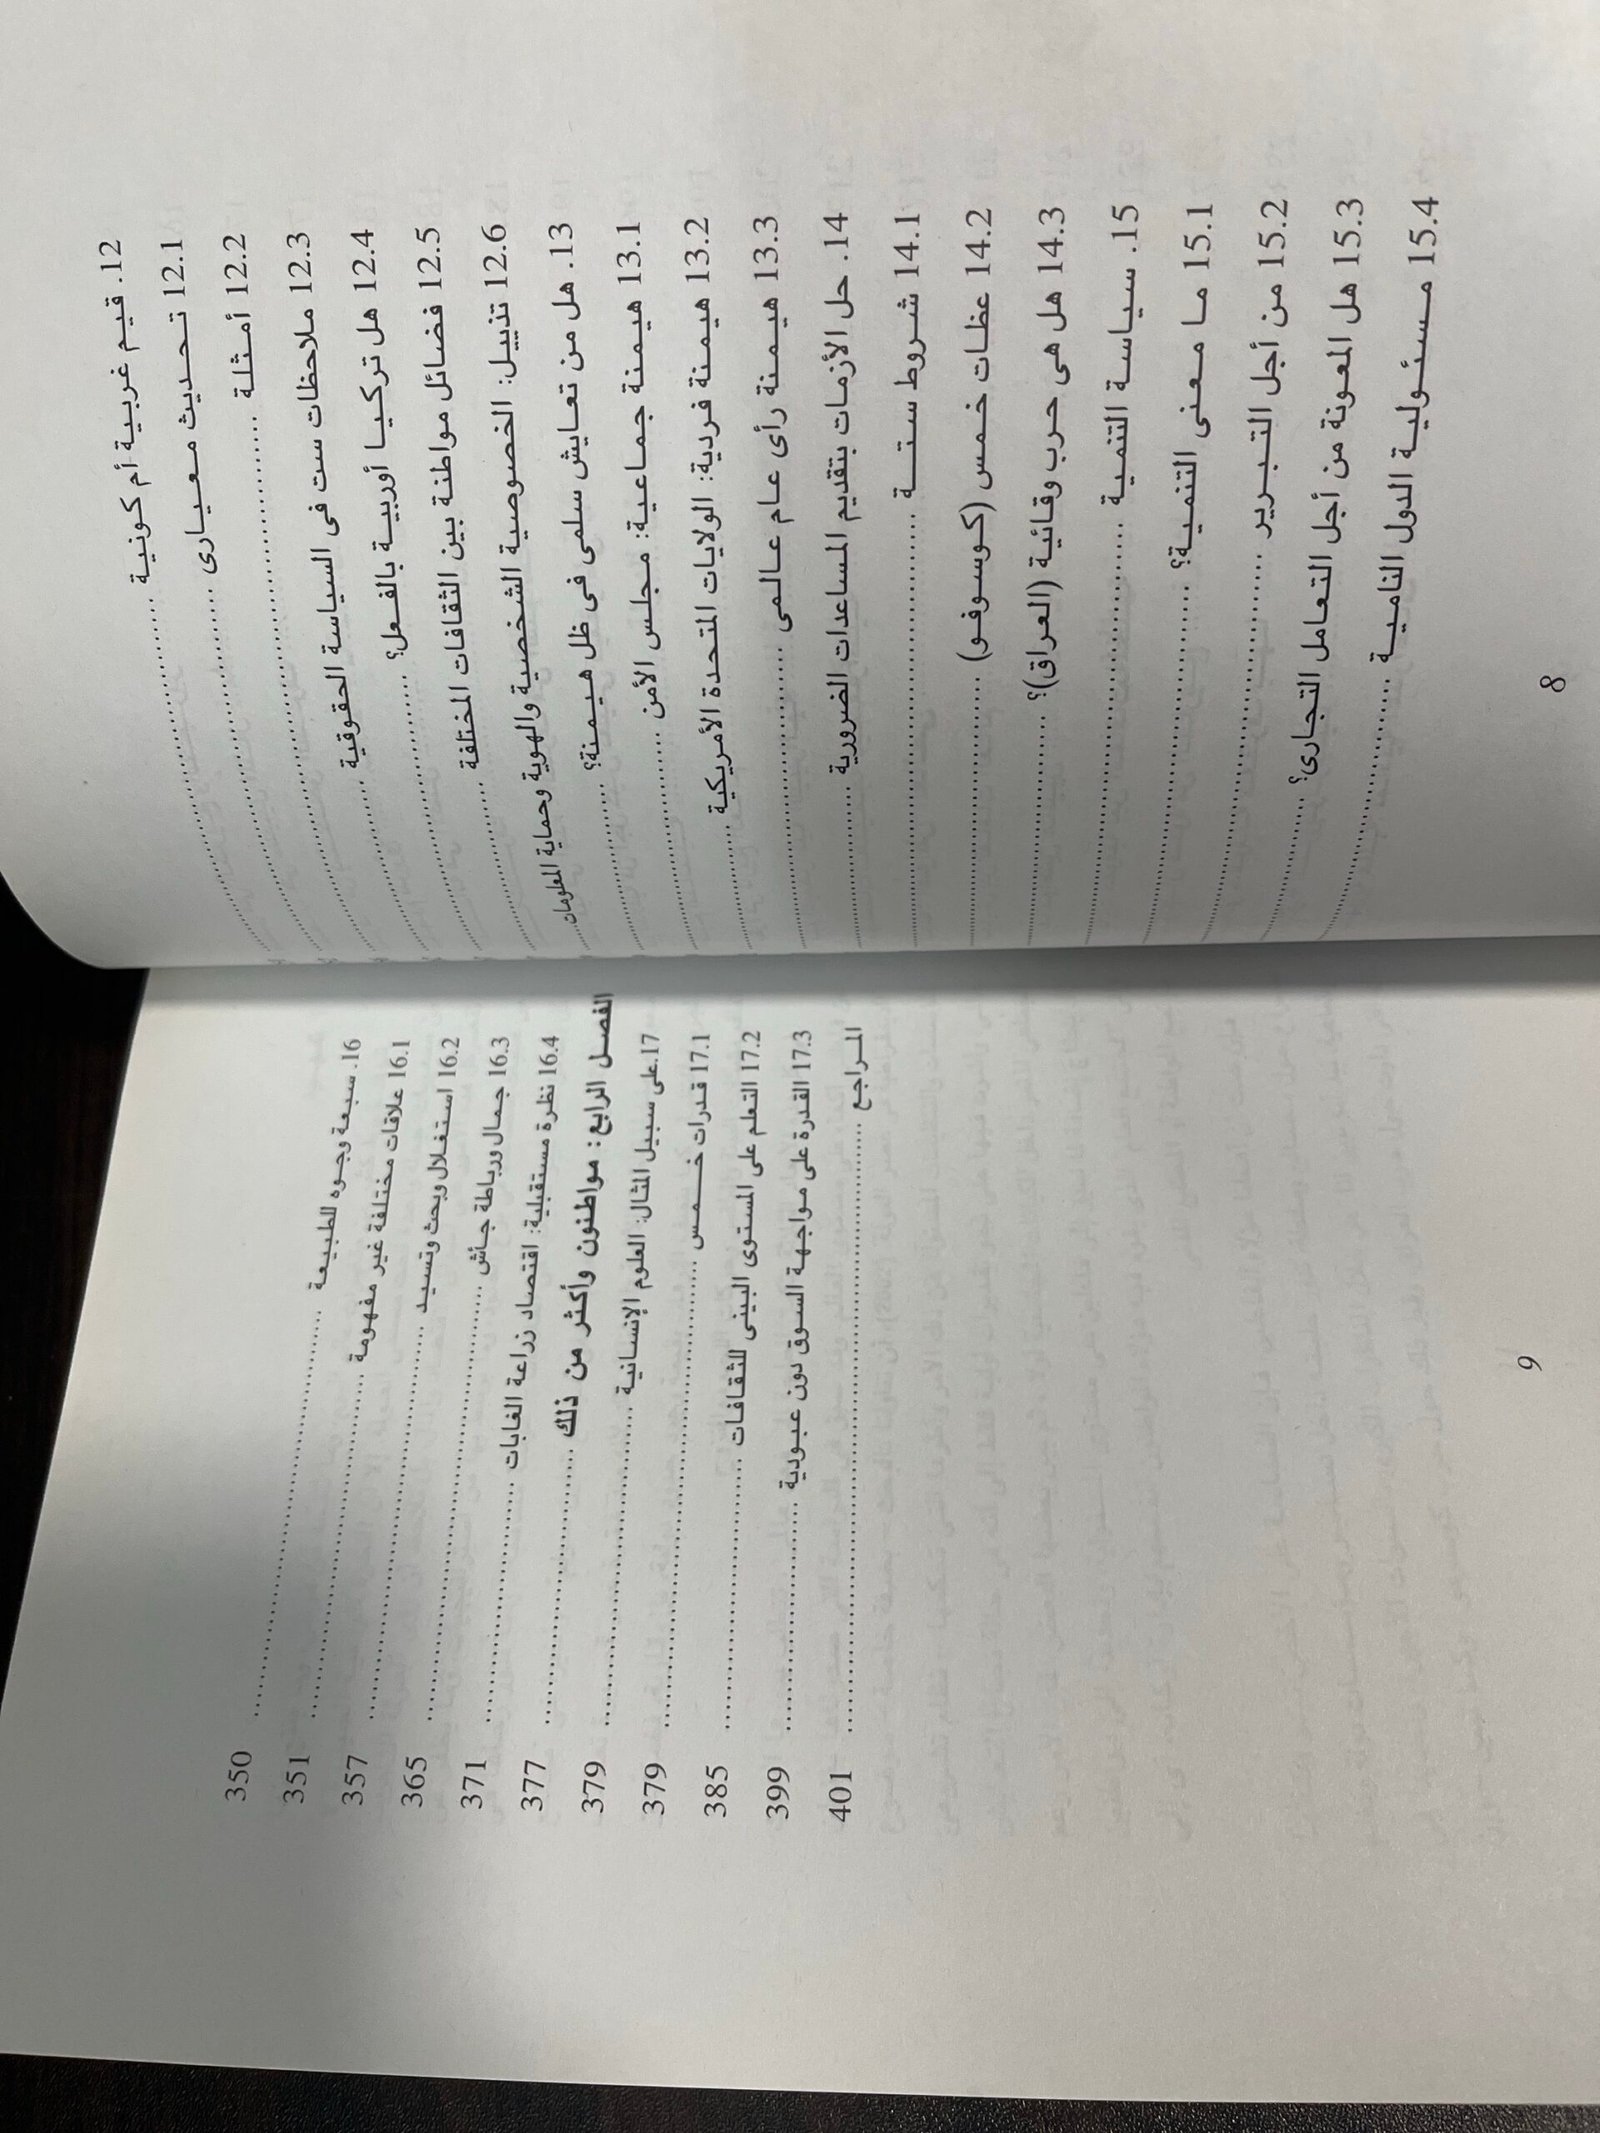 12. قيم غربية أم كونية ........................
12.1 تحديث معيارى ........................
12.2 أمثلة ........................
12.3 ملاحظات ست فى السياسة الحقوقية ........................
12.4 هل تركيا أوربية بالفعل؟ ........................
12.5 فضائل مواطنة بين الثقافات المختلفة ........................
12.6 تذييل: الخصوصية الشخصية والهوية وحماية المعلومات ........
13. هل من تعايش سلمى فى ظل هيمنة؟ ........................
13.1 هيمنة جماعية: مجلس الأمن ........................
13.2 هيمنة فردية: الولايات المتحدة الأمريكية ........................
13.3 هيمنة رأى عام عالمى ........................
14. حل الأزمات بتقديم المساعدات الضرورية ........................
14.1 شروط ستة ........................
14.2 عظات خمس (كوسوفو) ........................
14.3 هل هى حرب وقائية (العراق)؟ ........................
15. سياسة التنمية ........................
15.1 ما معنى التنمية؟ ........................
15.2 من أجل التبرير ........................
15.3 هل المعونة من أجل التعامل التجارى؟ ........................
15.4 مسئولية الدول النامية ........................
8
16. سبعة وجوه للطبيعة ........................ 350
16.1 علاقات مختلفة غير مفهومة ........................ 351
16.2 استغلال وبحث وتسيد ........................ 357
16.3 جمال ورباطة جأش ........................ 365
16.4 نظرة مستقبلية: اقتصاد زراعة الغابات ........................ 371
الفصل الرابع: مواطنون وأكثر من ذلك ........................ 377
17.على سبيل المثال: العلوم الإنسانية ........................ 379
17.1 قدرات خمس ........................ 379
17.2 التعلم على المستوى البينى للثقافات ........................ 385
17.3 القدرة على مواجهة السوق دون عبودية ........................ 399
المراجع ........................ 401
9